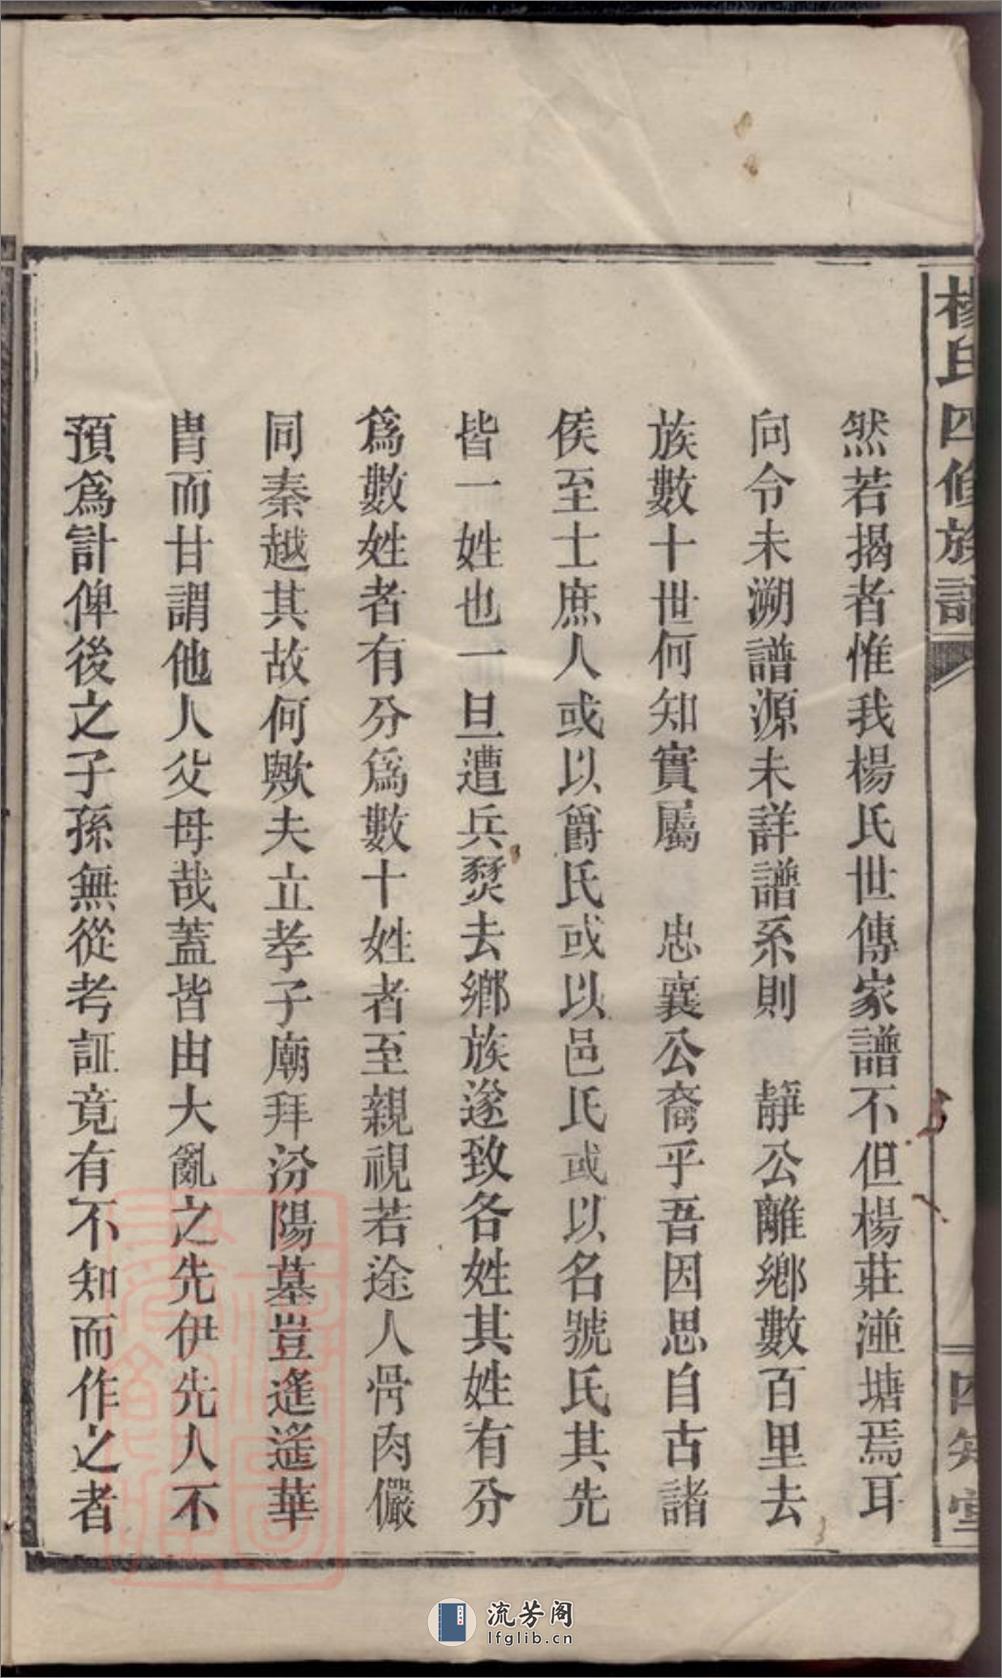 楊氏四修族譜
四知堂
然若揭者惟我楊氏世傳家譜不但楊莊湴塘焉耳
向令未溯譜源未詳譜系則 靜公離鄉數百里去
族數十世何知實屬 忠襄公裔乎吾因思自古諸
侯至士庶人或以爵氏或以邑氏或以名號氏其先
皆一姓也一旦遭兵燹去鄉族遂致各姓其姓有分
爲數姓者有分爲數十姓者至親視若途人骨肉儼
同秦越其故何歟夫立孝子廟拜汾陽墓豈遙遙華
胄而甘謂他人父母哉蓋皆由大亂之先伊先人不
預爲計俾後之子孫無從考証竟有不知而作之者
流芳阁
lfglib.cn